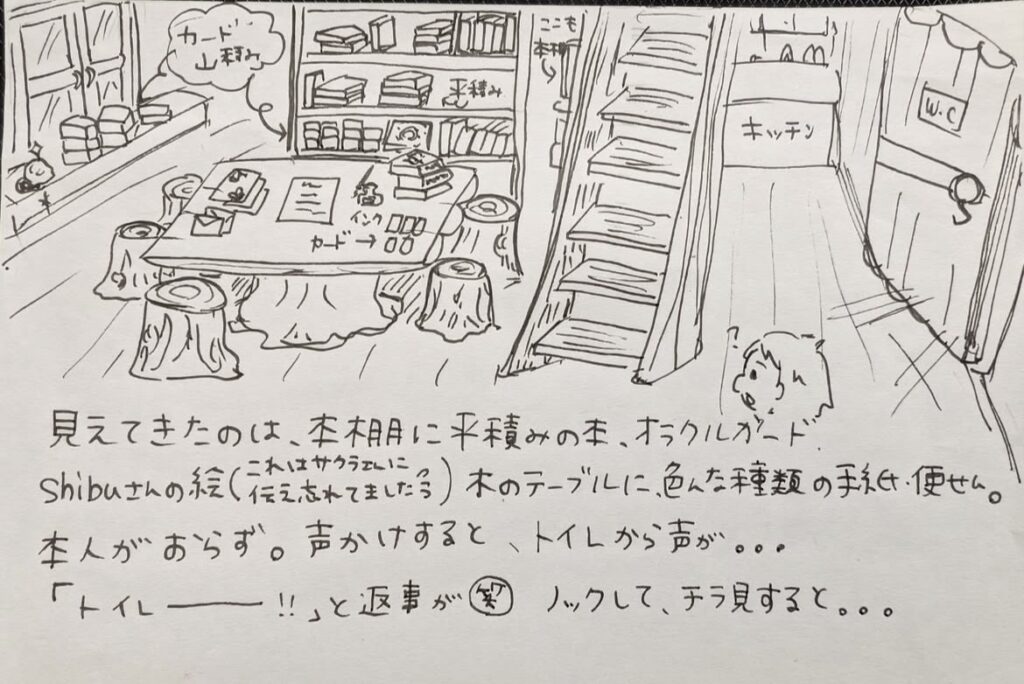 カード
山積み
ここも
本棚
平積み
キッチン
W.C
インク
カード→
見えてきたのは、本棚に平積みの本、オラクルカード、
shibuさんの絵(これはサクラさんに
伝え忘れてましたっ)木のテーブルに、色んな種類の手紙・便せん。
本人がおらず。声かけすると、トイレから声が...
「トイレーーー!!」と返事が笑 ノックして、チラ見すると...